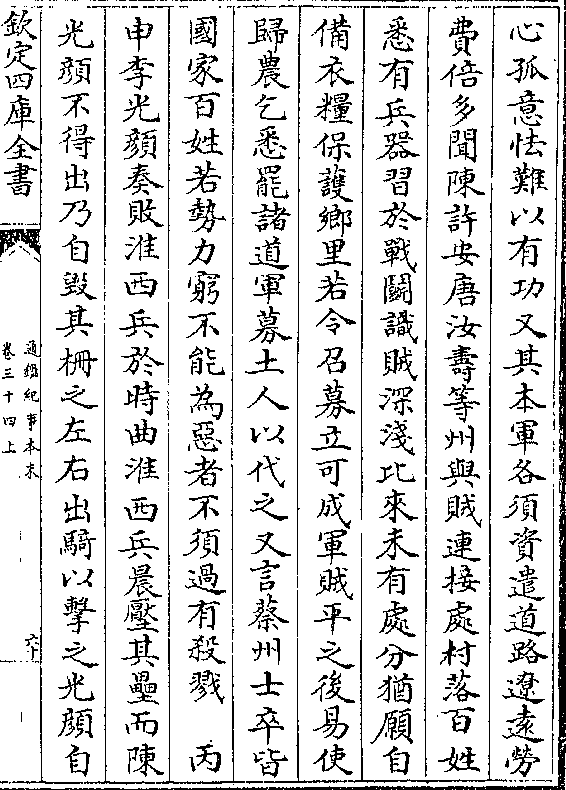 心孤意怯難以有功又其本軍各須資遣道路遼遠勞
費倍多聞陳許安唐汝壽等州與賊連接處村落百姓
悉有兵器習於戰鬭識賊深淺比來未有處分猶願自
備衣糧保護鄉里若令召募立可成軍賊平之後易使
歸農乞悉罷諸道軍募土人以代之又言蔡州士卒皆
國家百姓若勢力窮不能為惡者不須過有殺戮　丙
申李光顔奏敗淮西兵於時曲淮西兵晨壓其壘而陳
光顔不得出乃自毀其柵之左右出騎以擊之光顔自
欽定四庫全書
通鑑紀事本末
卷三十四上
六十